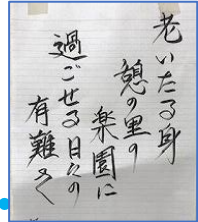 老いたる身
憩の里の
楽園に
過ごせる日々の
有難さ